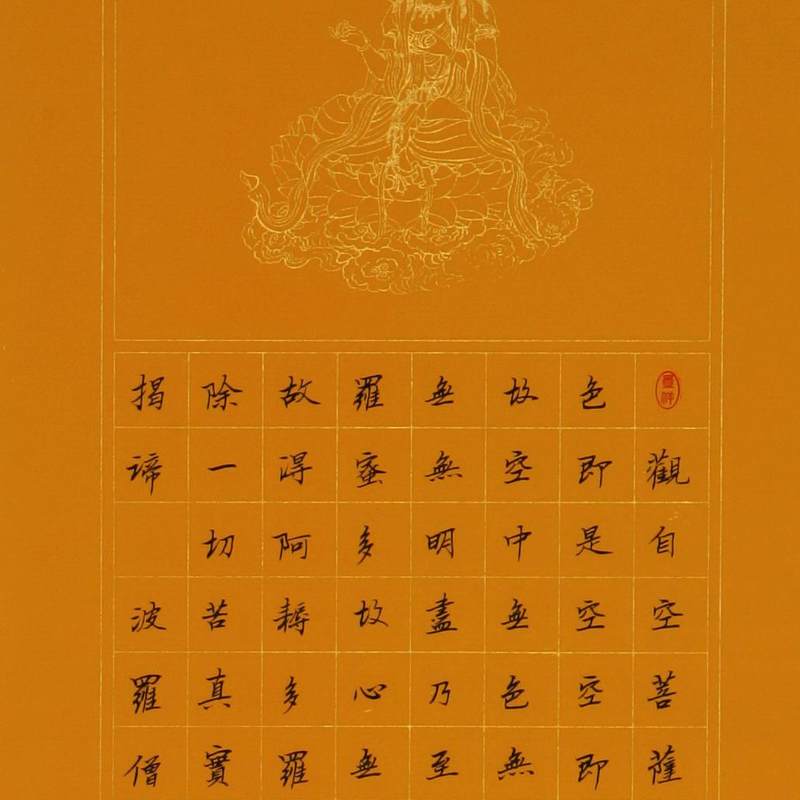 觀自空菩薩
色即是空空即
故空中無色無
無無明盡乃至
羅蜜多故心無
故得阿耨多羅
除一切苦真實
揭諦 波羅僧